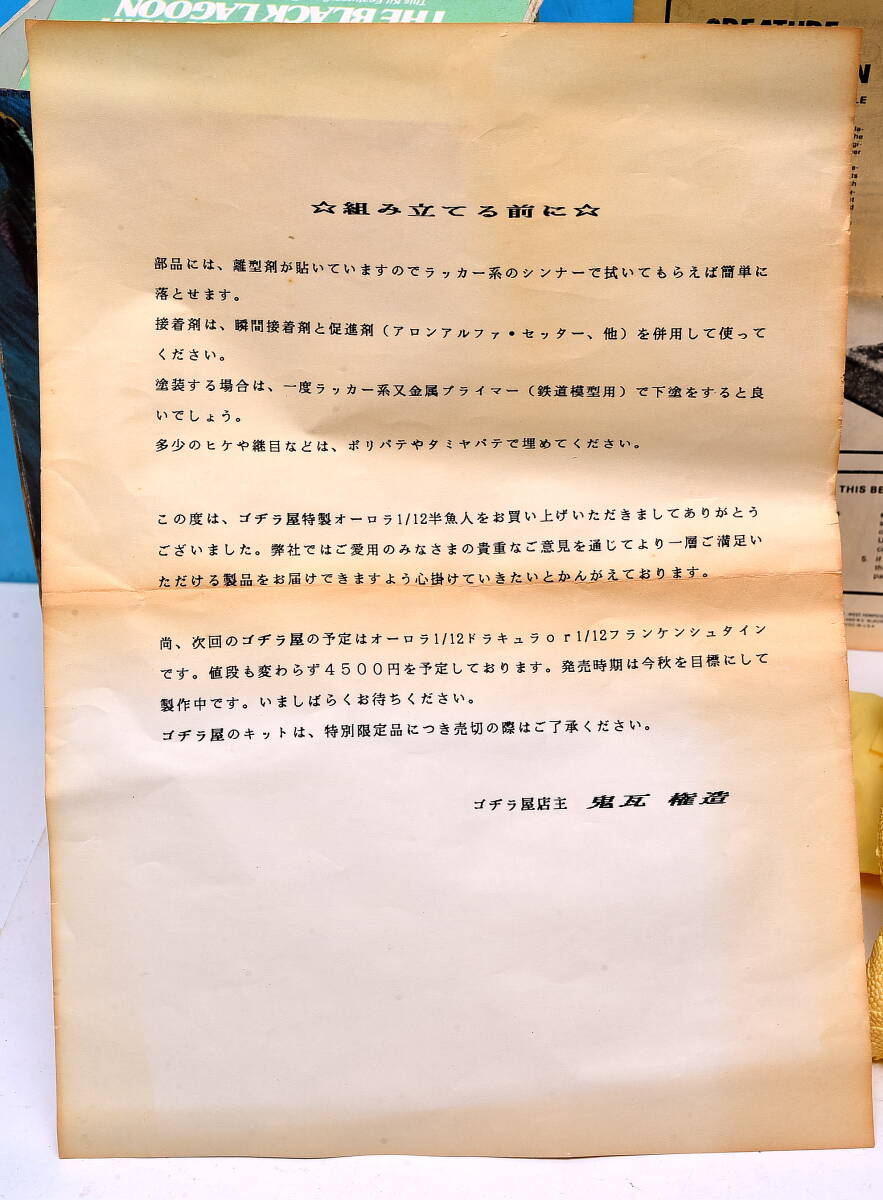 THE BLACK LAGOON
CREATURE
☆組み立てる前に☆
部品には、離型剤が貼いていますのでラッカー系のシンナーで拭いてもらえば簡単に
落とせます。
接着剤は、瞬間接着剤と促進剤（アロンアルファ・セッター、他）を併用して使って
ください。
塗装する場合は、一度ラッカー系又金属プライマー（鉄道模型用）で下塗をすると良
いでしょう。
多少のヒケや継目などは、ポリパテやタミヤパテで埋めてください。
この度は、ゴヂラ屋特製オーロラ1/12半魚人をお買い上げいただきましてありがとう
ございました。弊社ではご愛用のみなさまの貴重なご意見を通じてより一層ご満足い
ただける製品をお届けできますよう心掛けていきたいとかんがえております。
尚、次回のゴヂラ屋の予定はオーロラ1/12ドラキュラor1/12フランケンシュタイン
です。値段も変わらず４５００円を予定しております。発売時期は今秋を目標にして
製作中です。いましばらくお待ちください。
ゴヂラ屋のキットは、特別限定品につき売切の際はご了承ください。
ゴヂラ屋店主　鬼瓦 権造
THIS BE